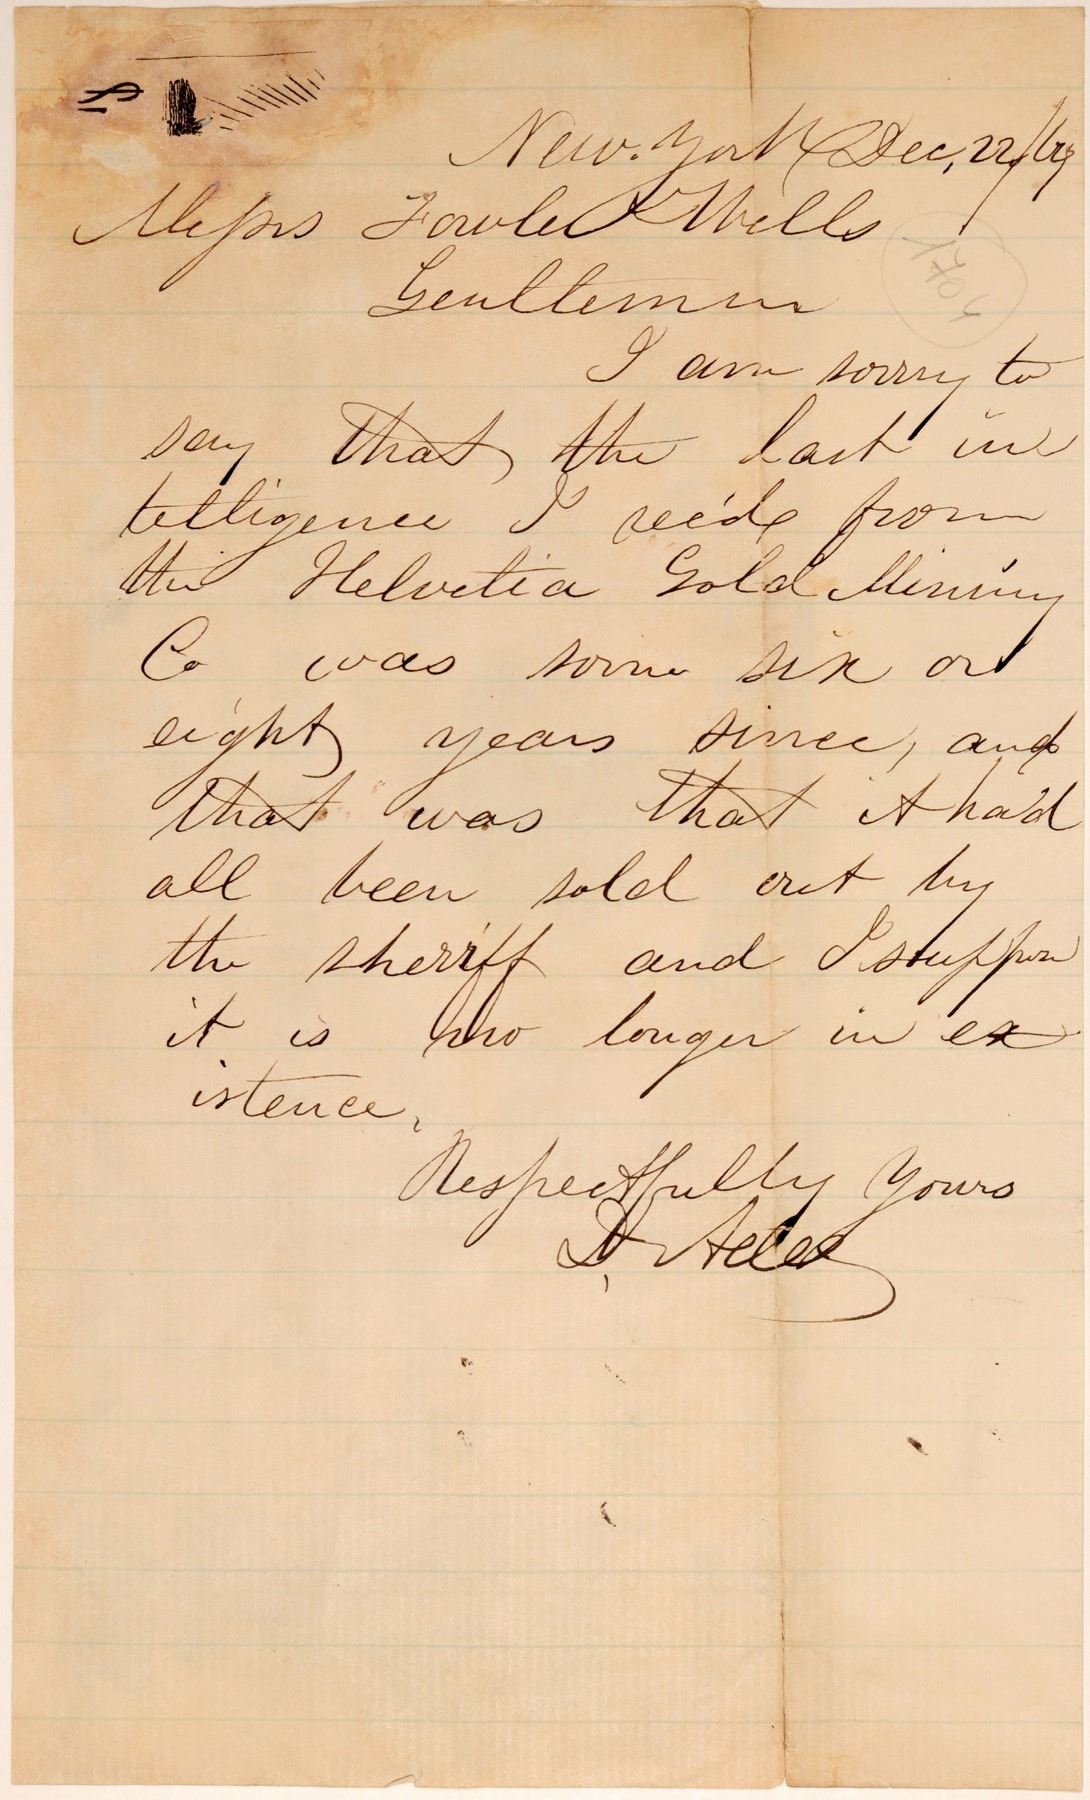 New. York Dec, 22/
Messrs Fowler & Wells
Gentlemen
I am sorry to
say that the last in
telligence I rec'd from
the Helvetia Gold Mining
Co was some six or
eight years since, and
that was that it had
all been sold out by
the sherriff and I suppose
it is no longer in ex
istence.
Respectfully Yours
D,
1704